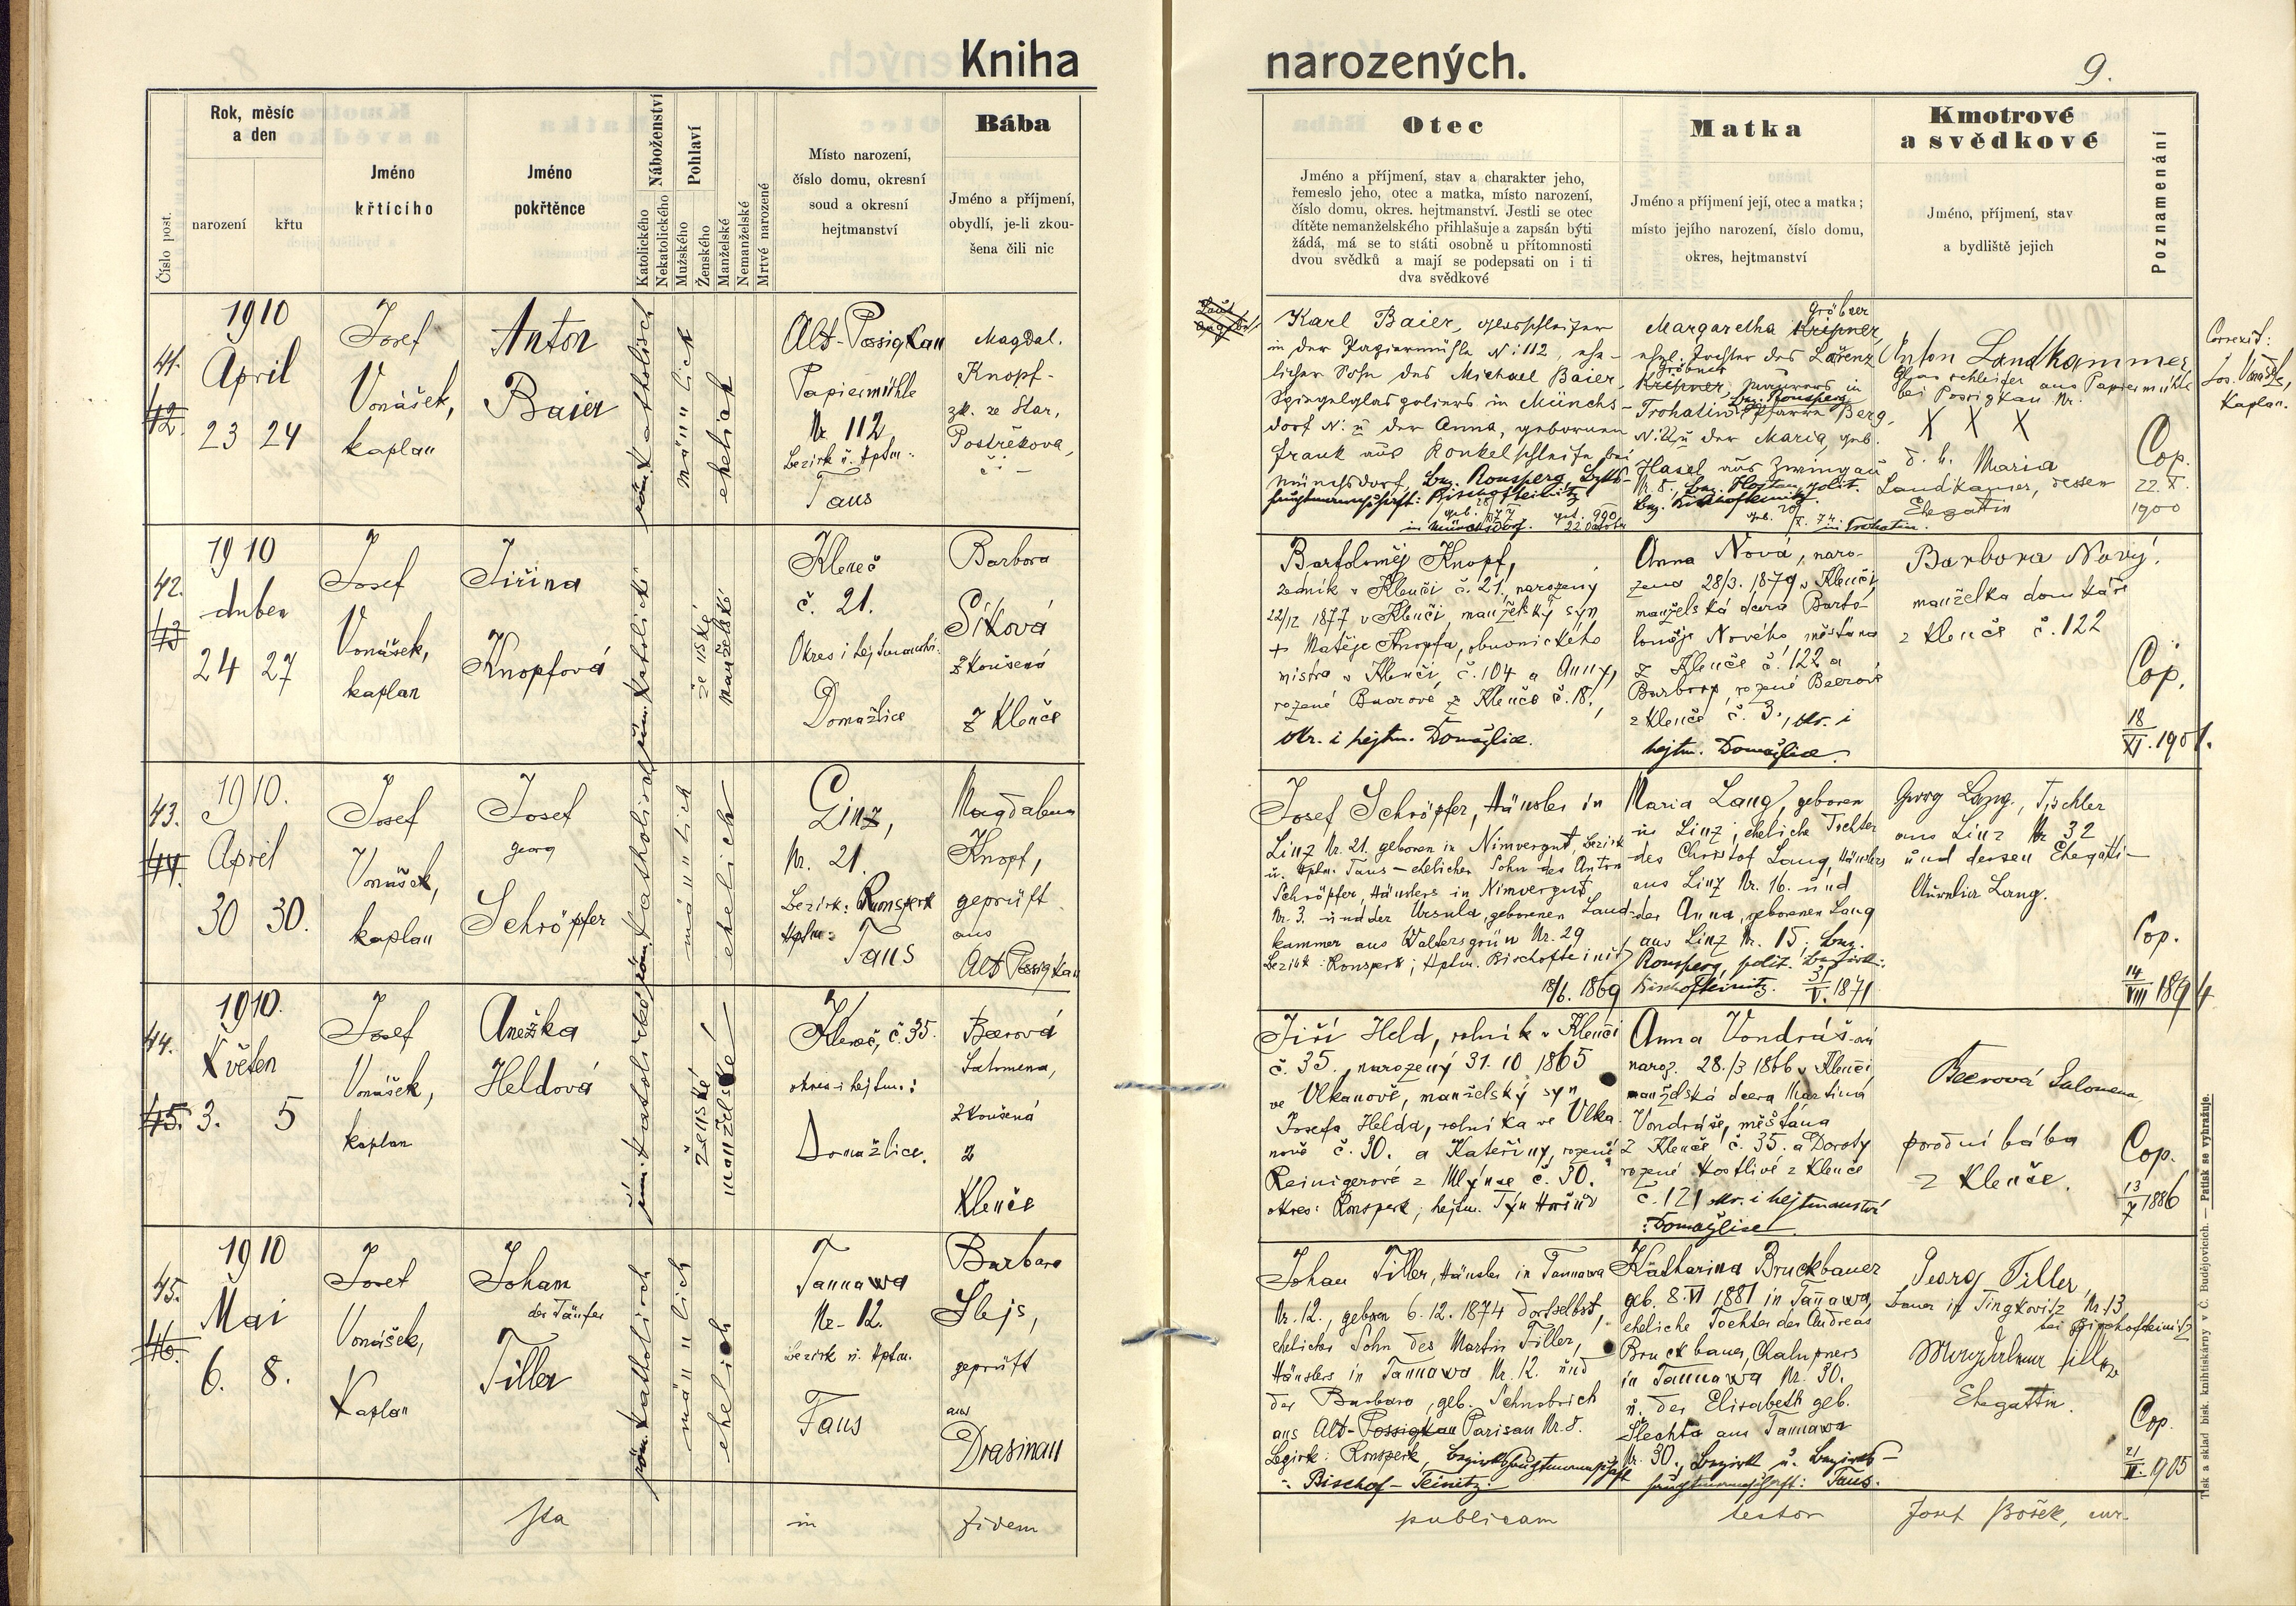 Kniha
narozených.
9.
Číslo post.
Rok, měsíc
a den
narození
křtu
Jméno
křtícího
Jméno
pokřtěnce
Náboženství
Katolického
Nekatolického
Pohlaví
Mužského
Ženského
Manželské
Nemanželské
Mrtvé narozené
Místo narození,
číslo domu, okresní
soud a okresní
hejtmanství
Bába
Jméno a příjmení,
obydlí, je-li zkou-
šena čili nic
Otec
Jméno a příjmení, stav a charakter jeho,
řemeslo jeho, otec a matka, místo narození,
číslo domu, okres. hejtmanství. Jestli se otec
dítěte nemanželského přihlašuje a zapsán býti
žádá, má se to státi osobně u přítomnosti
dvou svědků a mají se podepsati on i ti
dva svědkové
Matka
Jméno a příjmení její, otec a matka;
místo jejího narození, číslo domu,
okres, hejtmanství
Kmotrové
a svědkové
Jméno, příjmení, stav
a bydliště jejich
Poznamenání
41.
42.
1910
April
23 24
Josef
Vonášek,
kaplan
Anton
Baier
röm. katholisch
männlich
ehelich
Alt-Possigkau
Papiermühle
Nr. 112
Bezirk u. Hptm:
Taus
Magdal.
Knopf-
zk. ze Star,
Postřekova,
Karl Baier, Glasschleifer
in der Papiermühle N: 112, ehe-
licher Sohn des Michael Baier,
Spiegelglaspolierers in Münchs-
dorf N: u der Anna, geborenen
Frank aus Ronkelschleife bei
Münchsdorf, Bez. Ronsperg, Bzks-
hauptmannschaft: Bischofteinitz
Gröbner
Margaretha Kripner,
ehel. Tochter des Lorenz
Gröbner
Kripner
in
Bez. Ronsperg
Trohatin Pfarre Berg,
u der Maria, geb.
Hasel aus Zwingau
Nr. 8, Bez. Hostau, polit.
Bez. Bischofteinitz.
in Trohatin.
Anton Landkammer
Glasschleifer aus Papiermühle
bei Possigkau Nr.
X X X
d. h. Maria
Landkamer, dessen
Ehegattin
Cop.
22. X.
1900
Correxit:
Jos. Vonášek,
Kaplan.
42.
43
1910
duben
24 27
Josef
Vonášek,
kaplan
Jiřina
Knopfová
řím. katolické
ženské
manželské
Kleneč
č. 21.
Okres i hejtmanství:
Domažlice
Barbora
Síková
zkoušená
z Klenče
Bartoloměj Knopf,
zedník v Klenči č. 21, narozený
22/12 1877 v Klenči, manželský syn
+ Matěje Knopfa, obuvnického
mistra v Klenči, č. 104 a Anny,
rozené Baurové z Klenče č. 18,
okr. i hejtm. Domažlice.
Anna Nová, naro-
zená 28/3. 1879 v Klenči
manželská dcera Barto-
loměje Nového, měšťana
z Klenče č. 122 a
Barbory, rozené Beerové
z Klenče č. 3., okr. i
hejtm. Domažlice.
Barbora Nový!
manželka domkáře
z Klenče č. 122
Cop.
18
XI. 1901.
43.
44.
1910.
April
30 30.
Josef
Vonášek,
kaplan
Josef
Georg
Schröpfer
röm. katholisch
männlich
ehelich
Linz,
Nr. 21.
Bezirk: Ronsperk
Hptm:
Taus
Magdalena
Knopf,
geprüft
aus
Alt Possigkau
Josef Schröpfer, Häusler in
Linz Nr. 21. geboren in Nimvergut, Bezirk
u. Hptm. Taus – ehelicher Sohn des Anton
Schröpfer, Häuslers in Nimvergut
Nr. 3. und der Ursula, geborenen Land-
kammer aus Waltersgrün Nr. 29
Bezirk: Ronsperk; Hptm. Bischofteinitz
18/6. 1869
Maria Lang, geboren
in Linz; eheliche Tochter
des Christof Lang, Häuslers
aus Linz Nr. 16. und
der Anna, geborenen Lang
aus Linz Nr. 15; Bez.
Ronsperg, polit. Bezirk:
Bischofteinitz. 31/V. 1871
Georg Lang, Tischler
aus Linz Nr 32
und dessen Ehegatti-
Aurelia Lang.
Cop.
14
VIII 1894
44.
45.
1910.
Květen
3. 5
Josef
Vonášek,
kaplan
Anežka
Heldová
řím. katolické
ženské
manželské
Kleneč, č. 35.
okres i hejtm.:
Domažlice.
Beerová
Salomena,
zkoušená
z
Klenče
Jiří Held, rolník v Klenči
č. 35., narozený 31. 10. 1865
ve Vlkanově, manželský syn
Josefa Helda, rolníka ve Vlka-
nově č. 30. a Kateřiny, rozené
Reinigerové z Mlýnce č. 30.
okres: Ronsperk; hejtm. Týn Horšův
Anna Vondráš-ová
naroz. 28./3 1866 v Klenči
manželská dcera Martina
Vondráše, měšťana
z Klenče č. 35. a Doroty
rozené Kostlivé z Klenče
č. 121 okr. i hejtmanství
: Domažlice
Beerová Salomena
porodní bába
z Klenče.
Cop.
1886
45.
46.
1910
Mai
6. 8.
Josef
Vonášek,
Kaplan
Johann
der Täufer
Tiller
röm. katholisch
männlich
ehelich
Tannawa
Nr- 12.
Bezirk u. Hptm.
Taus
Barbara
Slejs,
geprüft
aus
Drasinau
Johan Tiller, Häusler in Tannawa
Nr. 12., geboren 6. 12. 1874 dortselbst,
ehelicher Sohn des Martin Tiller,
Häuslers in Tannawa Nr. 12. und
der Barbara, geb. Schnobrich
aus Alt-Possigkau Parisau Nr. 8.
Bezirk: Ronsperk, Bezirkshauptmannschaft
: Bischof-Teinitz.
Katharina Bruckbauer
geb. 8. VI 1881 in Tannawa,
eheliche Tochter des Andreas
Bruckbauer, Chalupners
in Tannawa Nr. 30.
u. der Elisabeth geb.
Šlechta aus Tannawa
Nr. 30., Bezirk u. Bezirks-
hauptmannschaft: Taus.
Georg Tiller,
Bauer in Tingkovitz Nr. 13
bei Bischofteinitz
Magdalena Tiller
Ehegattin.
Cop.
21
II. 1905
Ita
in
fidem
publicam
testor
Josef Bošek, cur.
Tisk a sklad bisk. knihtiskárny v Č. Budějovicích. — Patisk se vyhražuje.